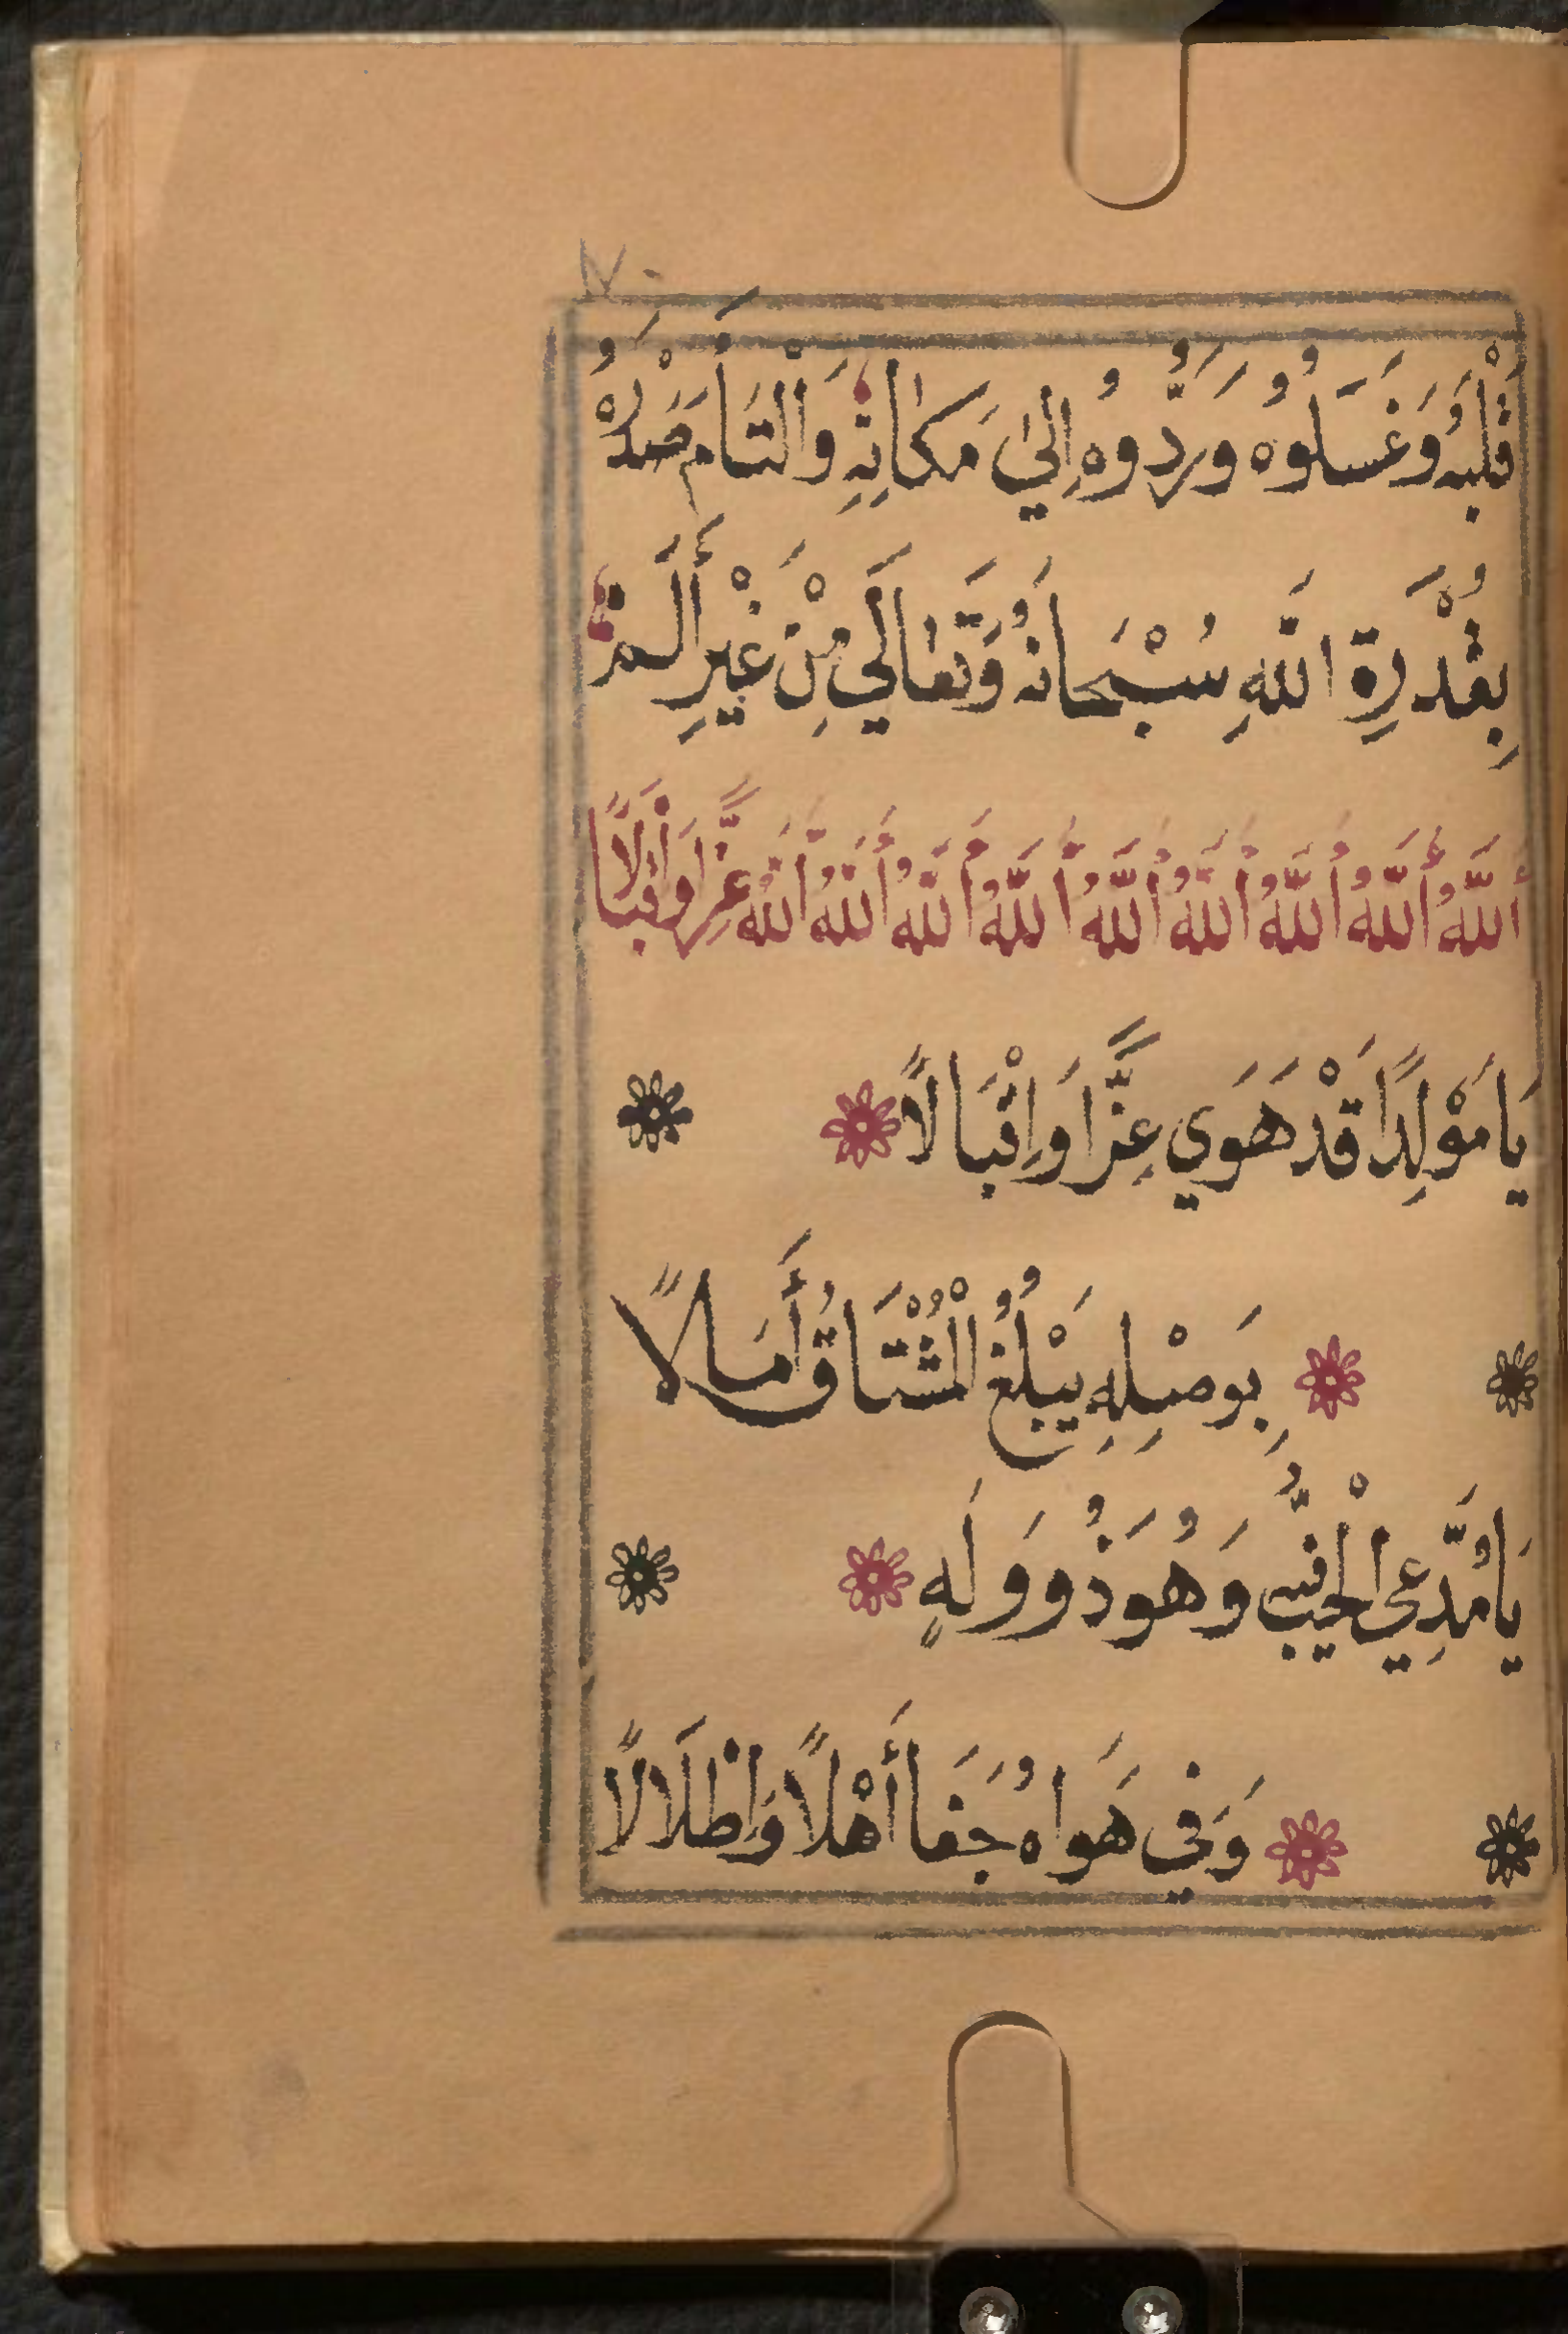 ٧٠
قَلْبَهُ وَغَسَلُوهُ وَرَدُّوهُ إِلَىٰ مَكَانِهِ وَالْتَأَمَ صَدْرُهُ
بِقُدْرَةِ اللَّهِ سُبْحَانَهُ وَتَعَالَي مِنْ غَيْرِ أَلَمٍ
أَللَّهُ أَللَّهُ أَللَّهُ أَللَّهُ أَللَّهُ أَللَّهُ أَللَّهُ أَللَّهُ أَللَّهُ عِزًّا وَاقْبَالًا
يَا مَوْلِدًا قَدْ هَوَي عِزًّا وَاِقْبَالًا
بِوَصْلِهِ يَبْلُغُ الْمُشْتَاقُ أَمَالًا
يَا مُدَّعِي الْحُبِّ وَهُوَ ذُو وَلَهٍ
وَفِي هَوَاهُ جَفَا أَهْلًا وَاطْلَالًا